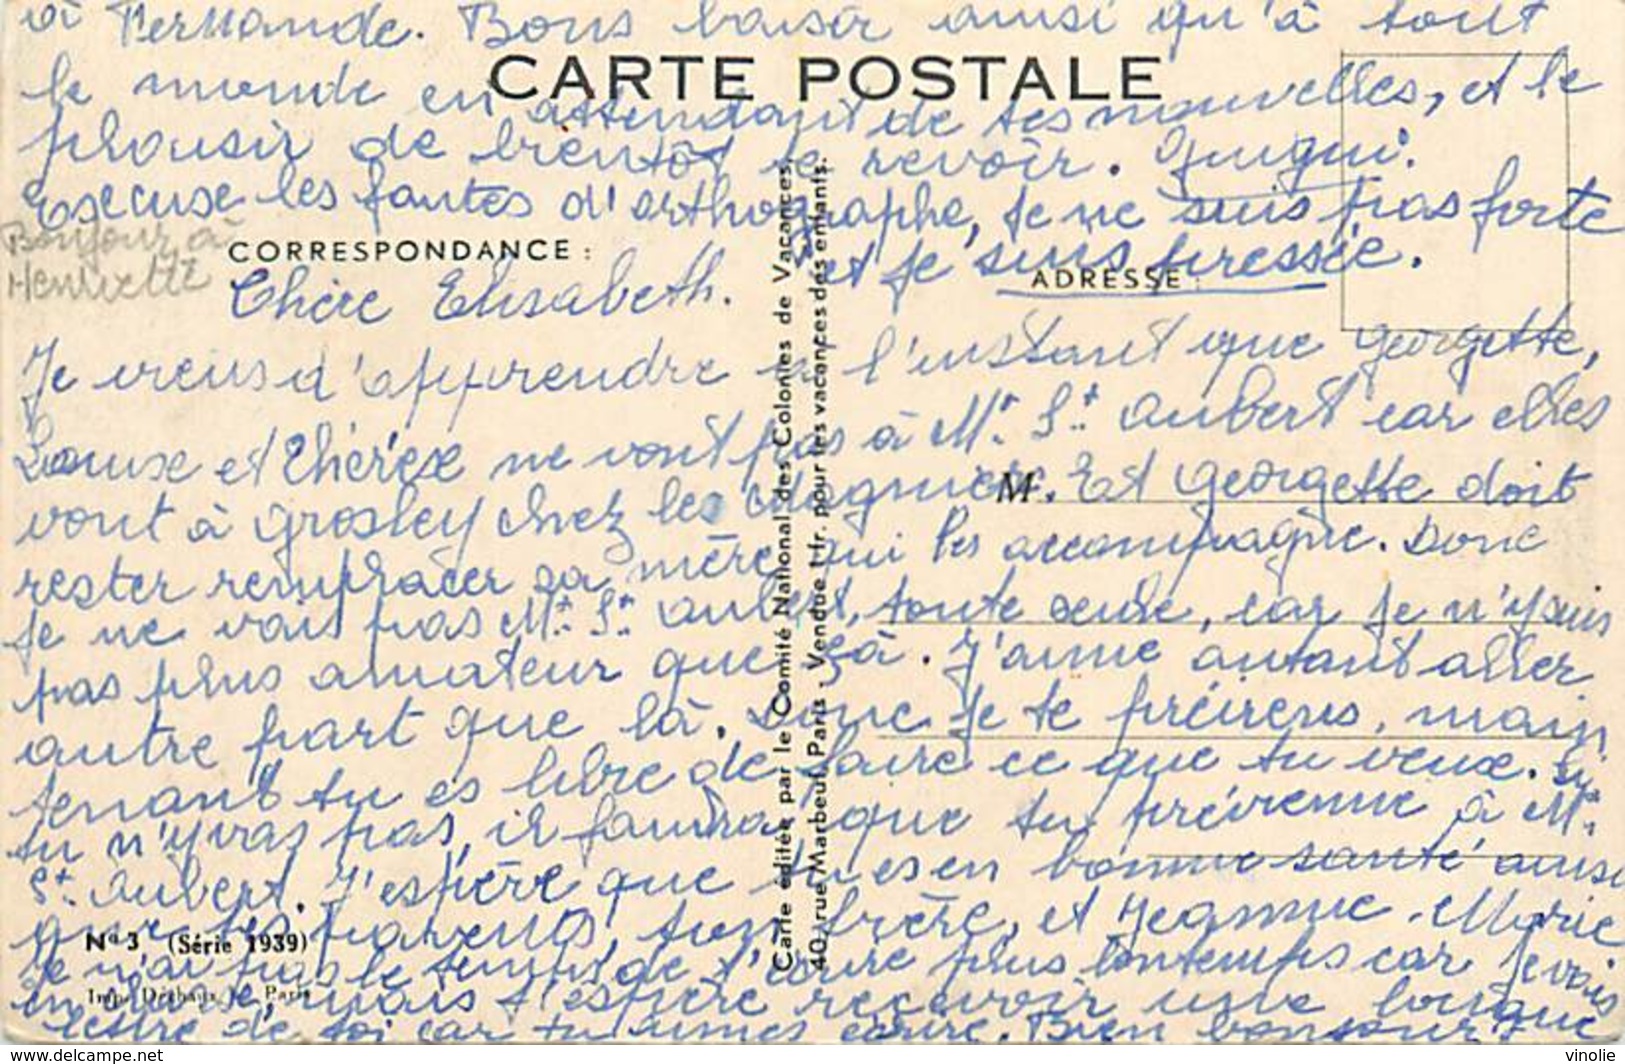 à Fernande. Bons baiser ainsi qu'à tout
CARTE POSTALE
le monde en attendant de tes nouvelles, et le
plousir de bientôt te revoir.
Escuse les fautes d'orthographe, je ne suis pas forte
et je suis pressée.
Bonjour à
Henriette
CORRESPONDANCE :
ADRESSE :
Chère Elisabeth.
Je viens d'apprendre à l'instant que Georgette,
Louise et Thérèse ne vont pas à Mt. St. Aubert car elles
vont à Grosley chez les M. Et Georgette doit
rester remplacer sa mère qui les accompagne. Donc
je ne vais pas Mt. St. Aubert, toute seule, car je n'y suis
pas plus amateur que çà. J'aime autant aller
autre part que là. Donc je te préviens, main
tenant tu es libre de faire ce que tu veux. Si
tu n'y vas pas, il faudra que tu prévienne à Mt.
St. Aubert. J'espère que tu es en bonne santé ainsi
que tes parents, ton frère, et Jeannine. Marie
No 3 (Série 1939)
Je n'ai pas le temps de t'écrire plus lontemps car je vais
Imp. Paris
mais j'espère recevoir une longue
lettre de toi car tu aimes écrire. Bien bonjour
Carte éditée par le Comité National des Colonies de Vacances,
40, rue Marbeuf, Paris - Vendue 1 fr. pour les vacances des enfants.
M
delcampe.net
vinolie